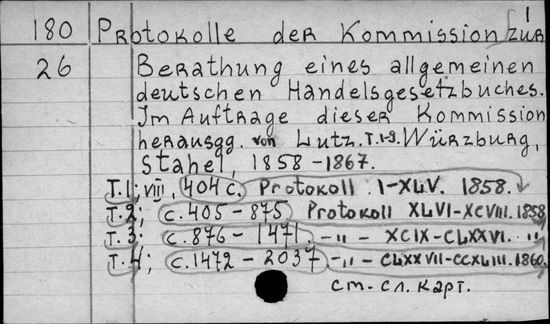 1
180 Protokolle der Kommission zur
26 Berathung eines allgemeinen
deutschen Handelsgesetzbuches.
Im Auftrage dieser Kommission
herausgg. von Lutz. T.1-9. Würzburg,
Stahel, 1858-1867.
T.1; VIII, 404 с. Protokoll I-XLV. 1858.
T.2; с. 405-875 Protokoll XLVI-XCVIII. 1858
T.3; с. 876-1471. -"- XCIX-CLXXVI. "
T.4; с. 1472-2037 -"- CLXXVII-CCXLIII. 1860.
см. сл. карт.